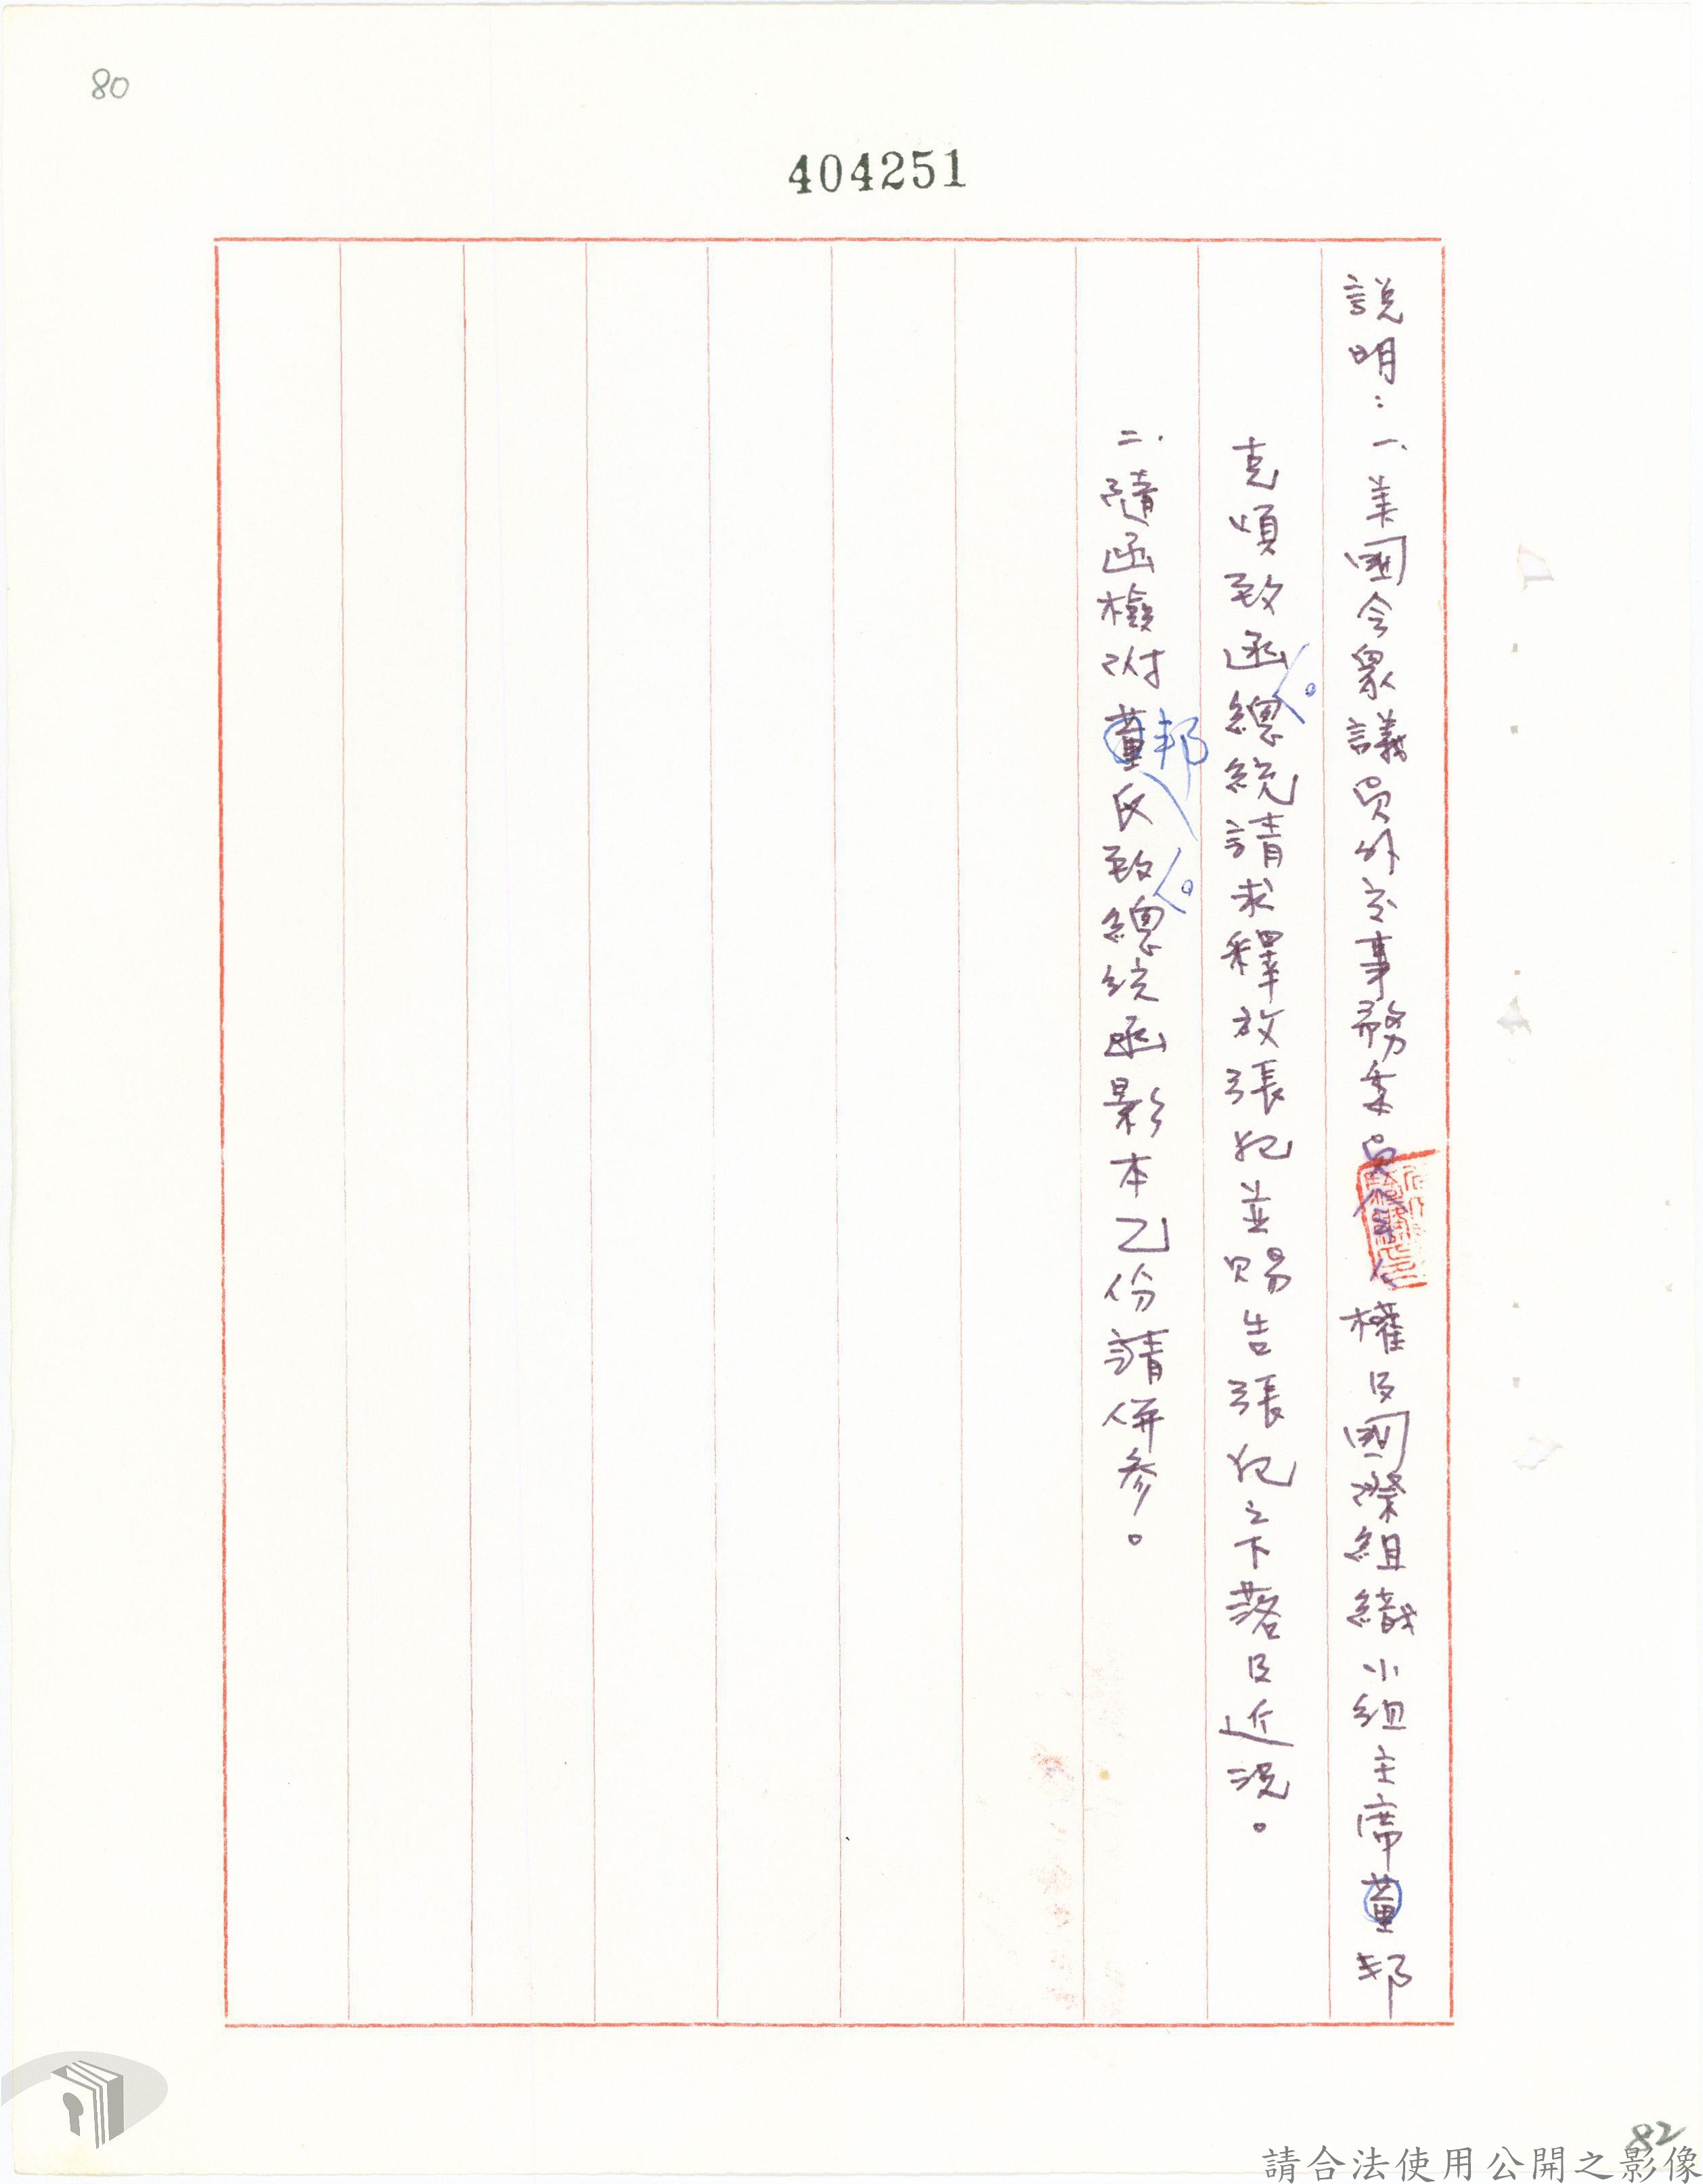 80
404251
說明：一、美國令眾議員外交事務委員會人權及國際組織小組主席董邦
克頃致函總統請求釋放張犯並賜告張犯之下落及近況。
二、隨函檢附董氏致總統函影本乙份請併參。
邦
82
請合法使用公開之影像